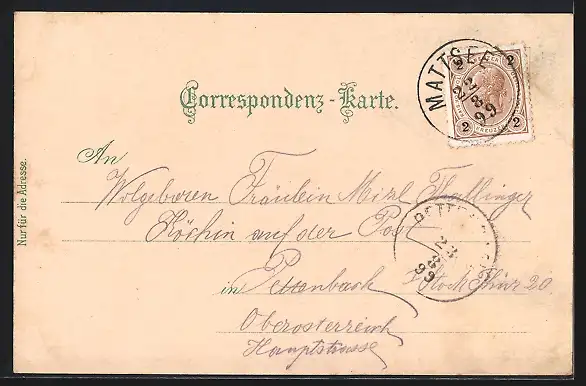 MATTSEE
22 8 99
2 2
2 2
Correspondenz-Karte.
Nur für die Adresse.
An
Wolgeboren Fräulein Mizl Thallinger
Köchin auf der Post
PETTENBACH
23 8 99
in Pettenbach Stock Thür 20
Oberosterreich
Hauptstrasse